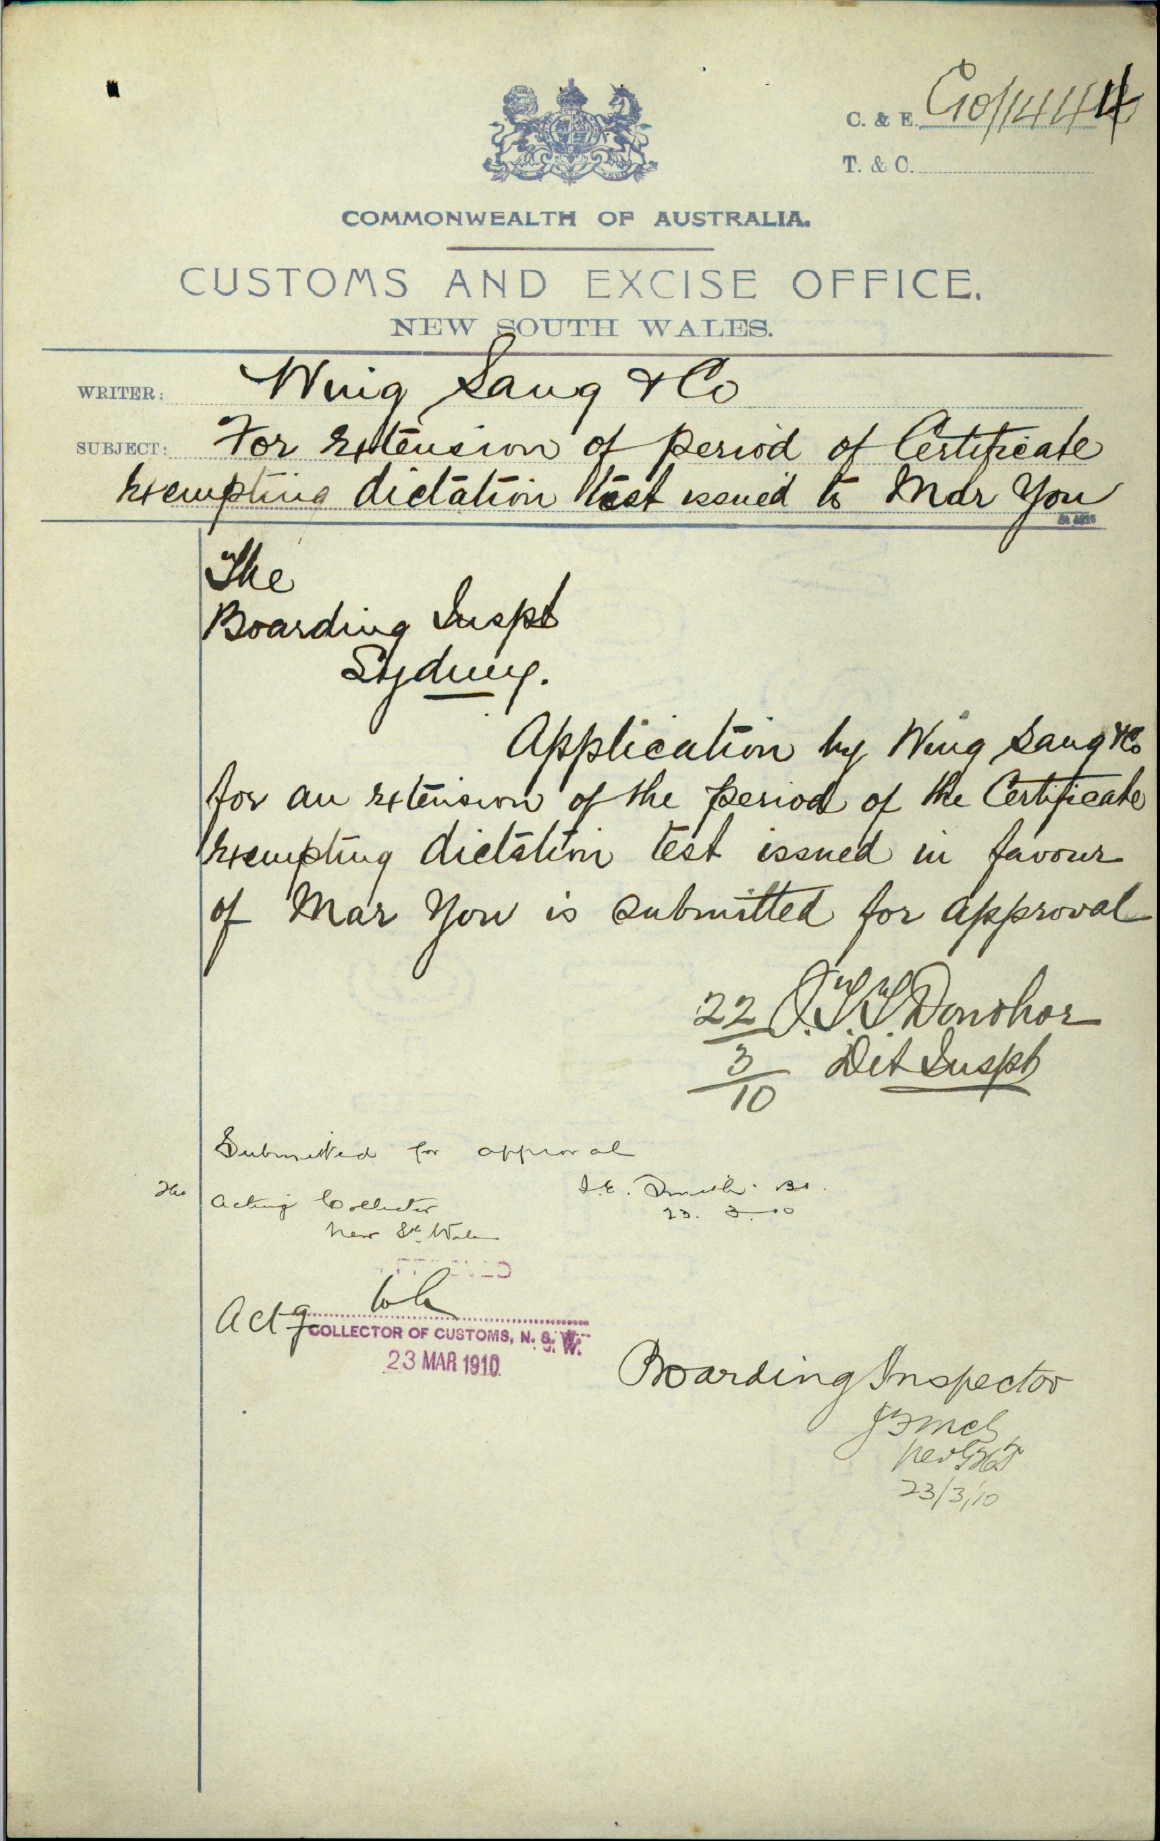 C. & E. C10/14444
T. & C.
COMMONWEALTH OF AUSTRALIA.
CUSTOMS AND EXCISE OFFICE.
NEW SOUTH WALES.
WRITER: Wing Sang & Co
SUBJECT: For extension of period of Certificate
exempting dictation test issued to Mar You
The
Boarding Inspt
Sydney.
Application by Wing Sang & Co
for an extension of the period of the Certificate
exempting dictation test issued in favour
of Mar You is submitted for approval
22 J.T.T. Donohoe
3 Det Inspt
10
Submitted for approval
The Acting Collector
New Sth Wales
23. 3. 10
Actg
COLLECTOR OF CUSTOMS, N. S. W.
23 MAR 1910
Boarding Inspector
23/3/10